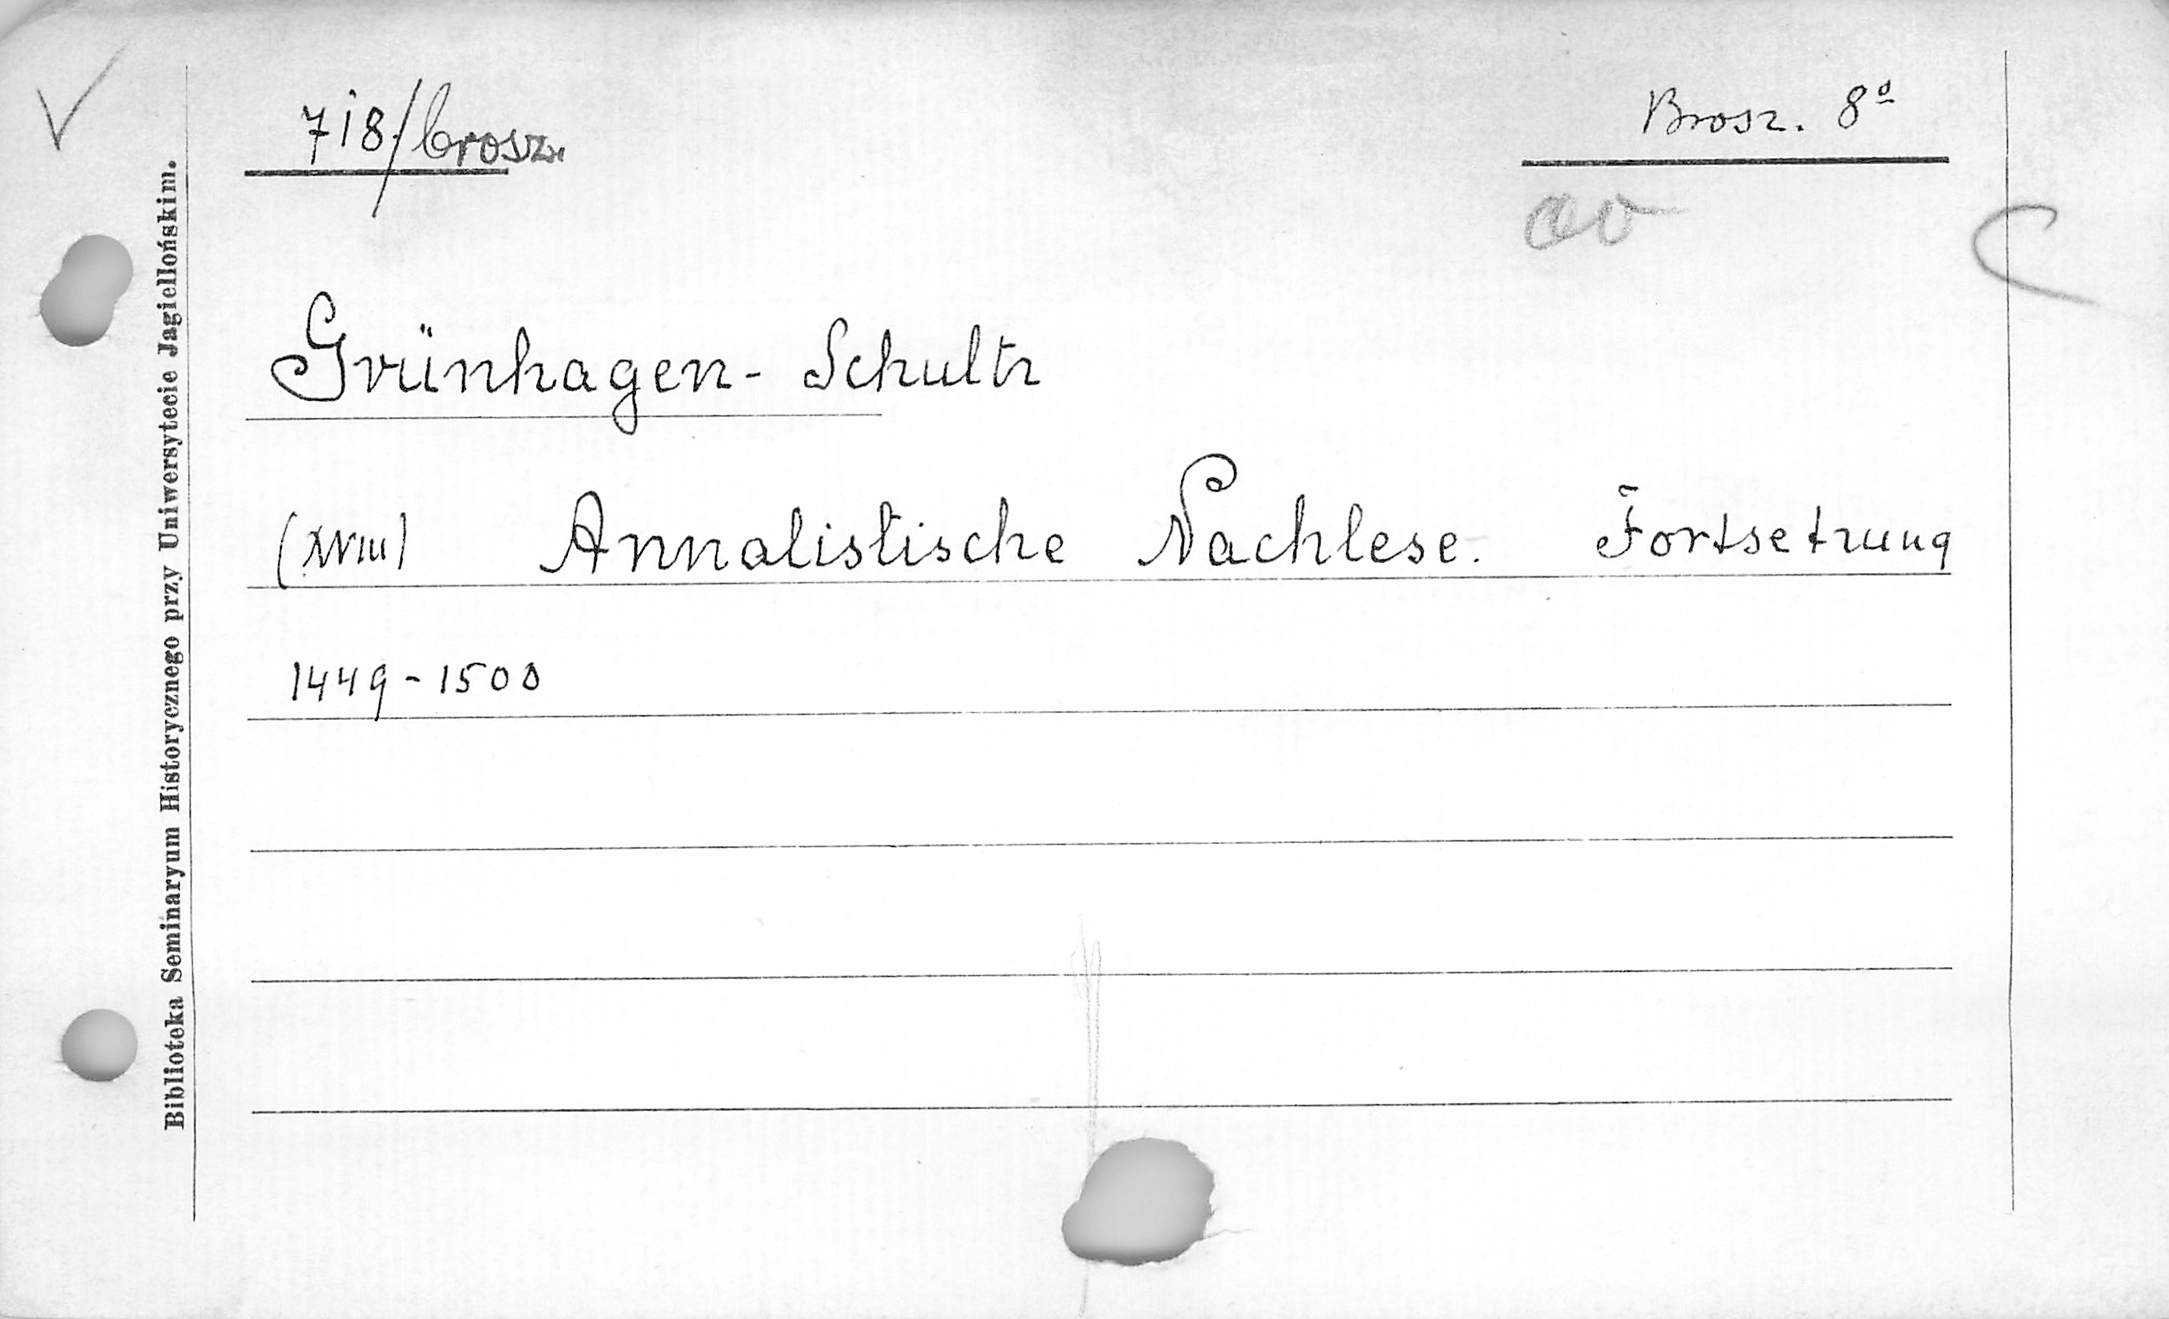 718/brosz.
Brosz. 8º
Grünhagen - Schultz
(XVIII) Annalistische Nachlese. Fortsetzung
1449 - 1500
Biblioteka Seminaryum Historycznego przy Uniwersytecie Jagiellońskim.